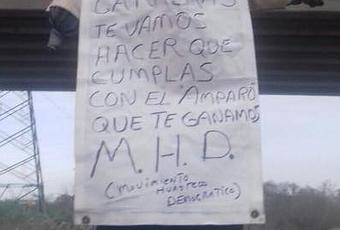 TE VAMOS
HACER QUE
CUMPLAS
CON EL AMPARO
QUE TE GANAMOS
M. H. D.
(MOVIMIENTO
HUASTECO
DEMOCRATICO)